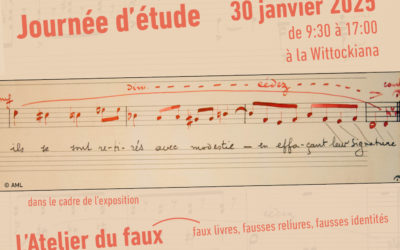 Journée d'étude
30 janvier 2025
de 9:30 à 17:00
à la Wittockiana
Dim - - - cedez - - -
ils se sont re-ti-rés avec modestie — en effaçant leur signature
© AML
dans le cadre de l'exposition
L'Atelier du faux
faux livres, fausses reliures, fausses identités